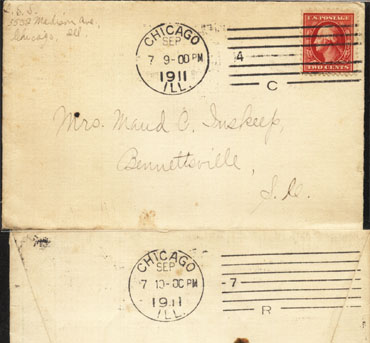 5558 Madison Ave.
Chicago, Ill.
CHICAGO
SEP
7 9-00 PM
1911
ILL.
4
C
U.S. POSTAGE
TWO CENTS
Mrs. Maud C. Inskeep,
Bennettsville,
S.C.
CHICAGO
SEP
7 10-00 PM
1911
ILL.
7
R